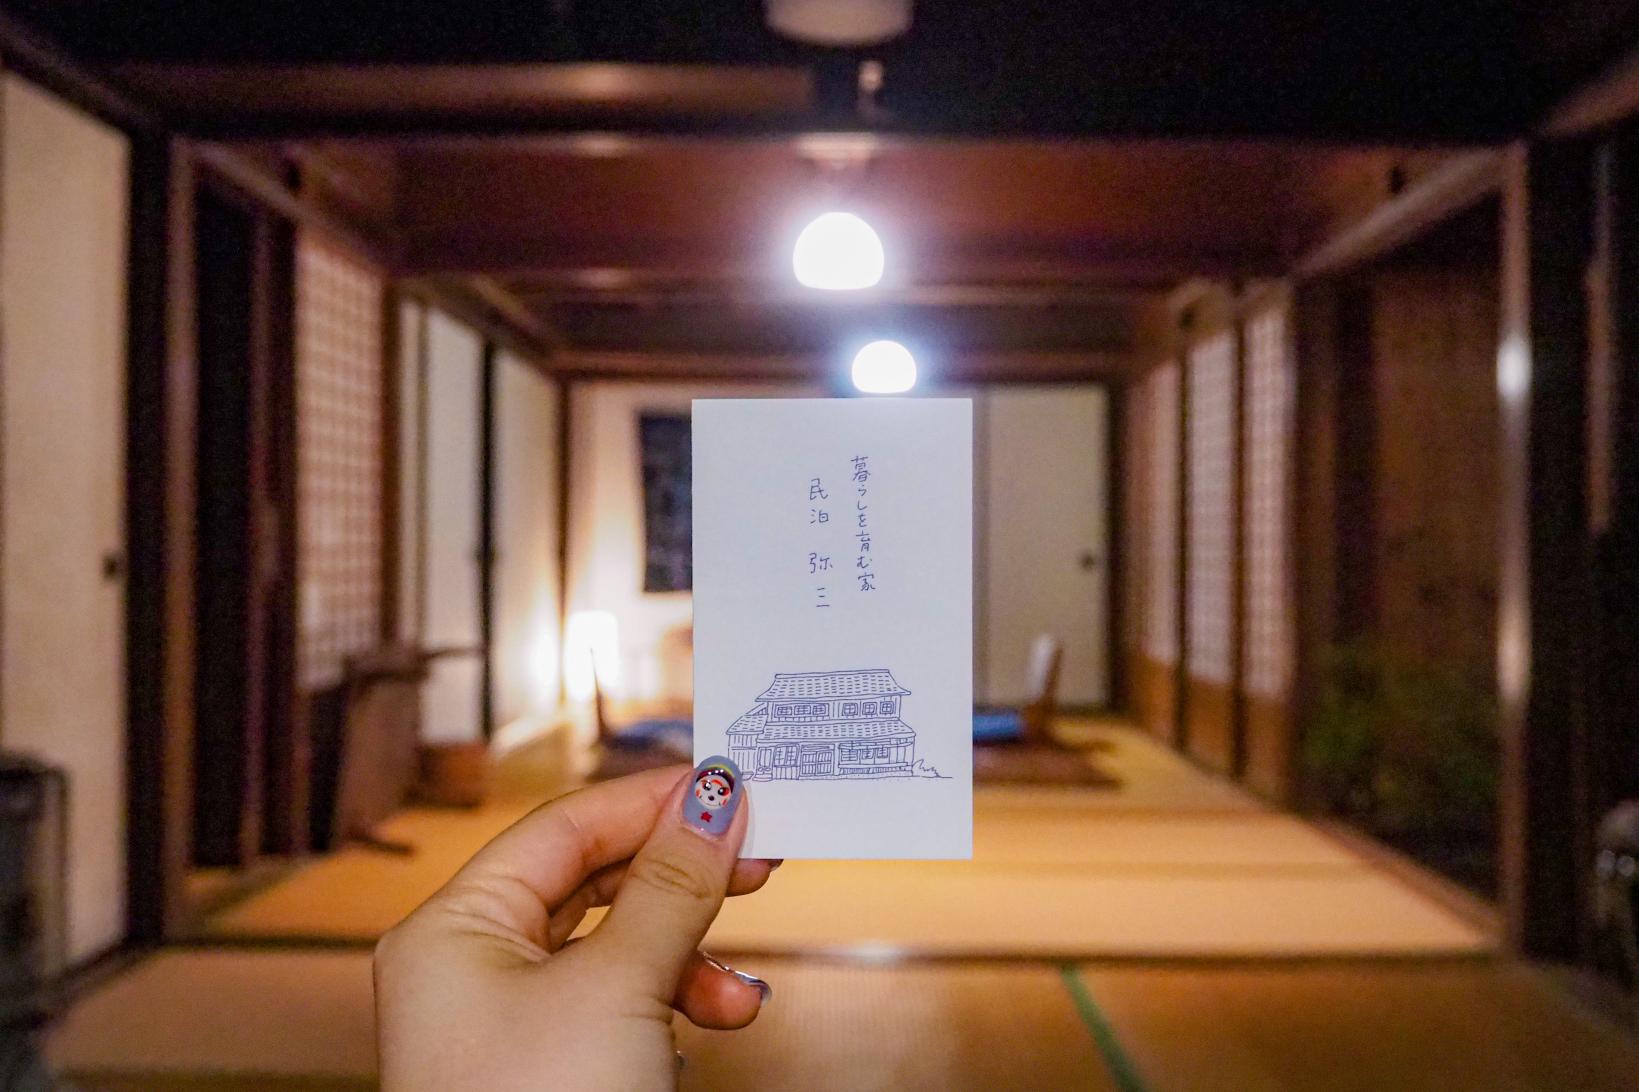 暮らしを育む家
民泊 弥三